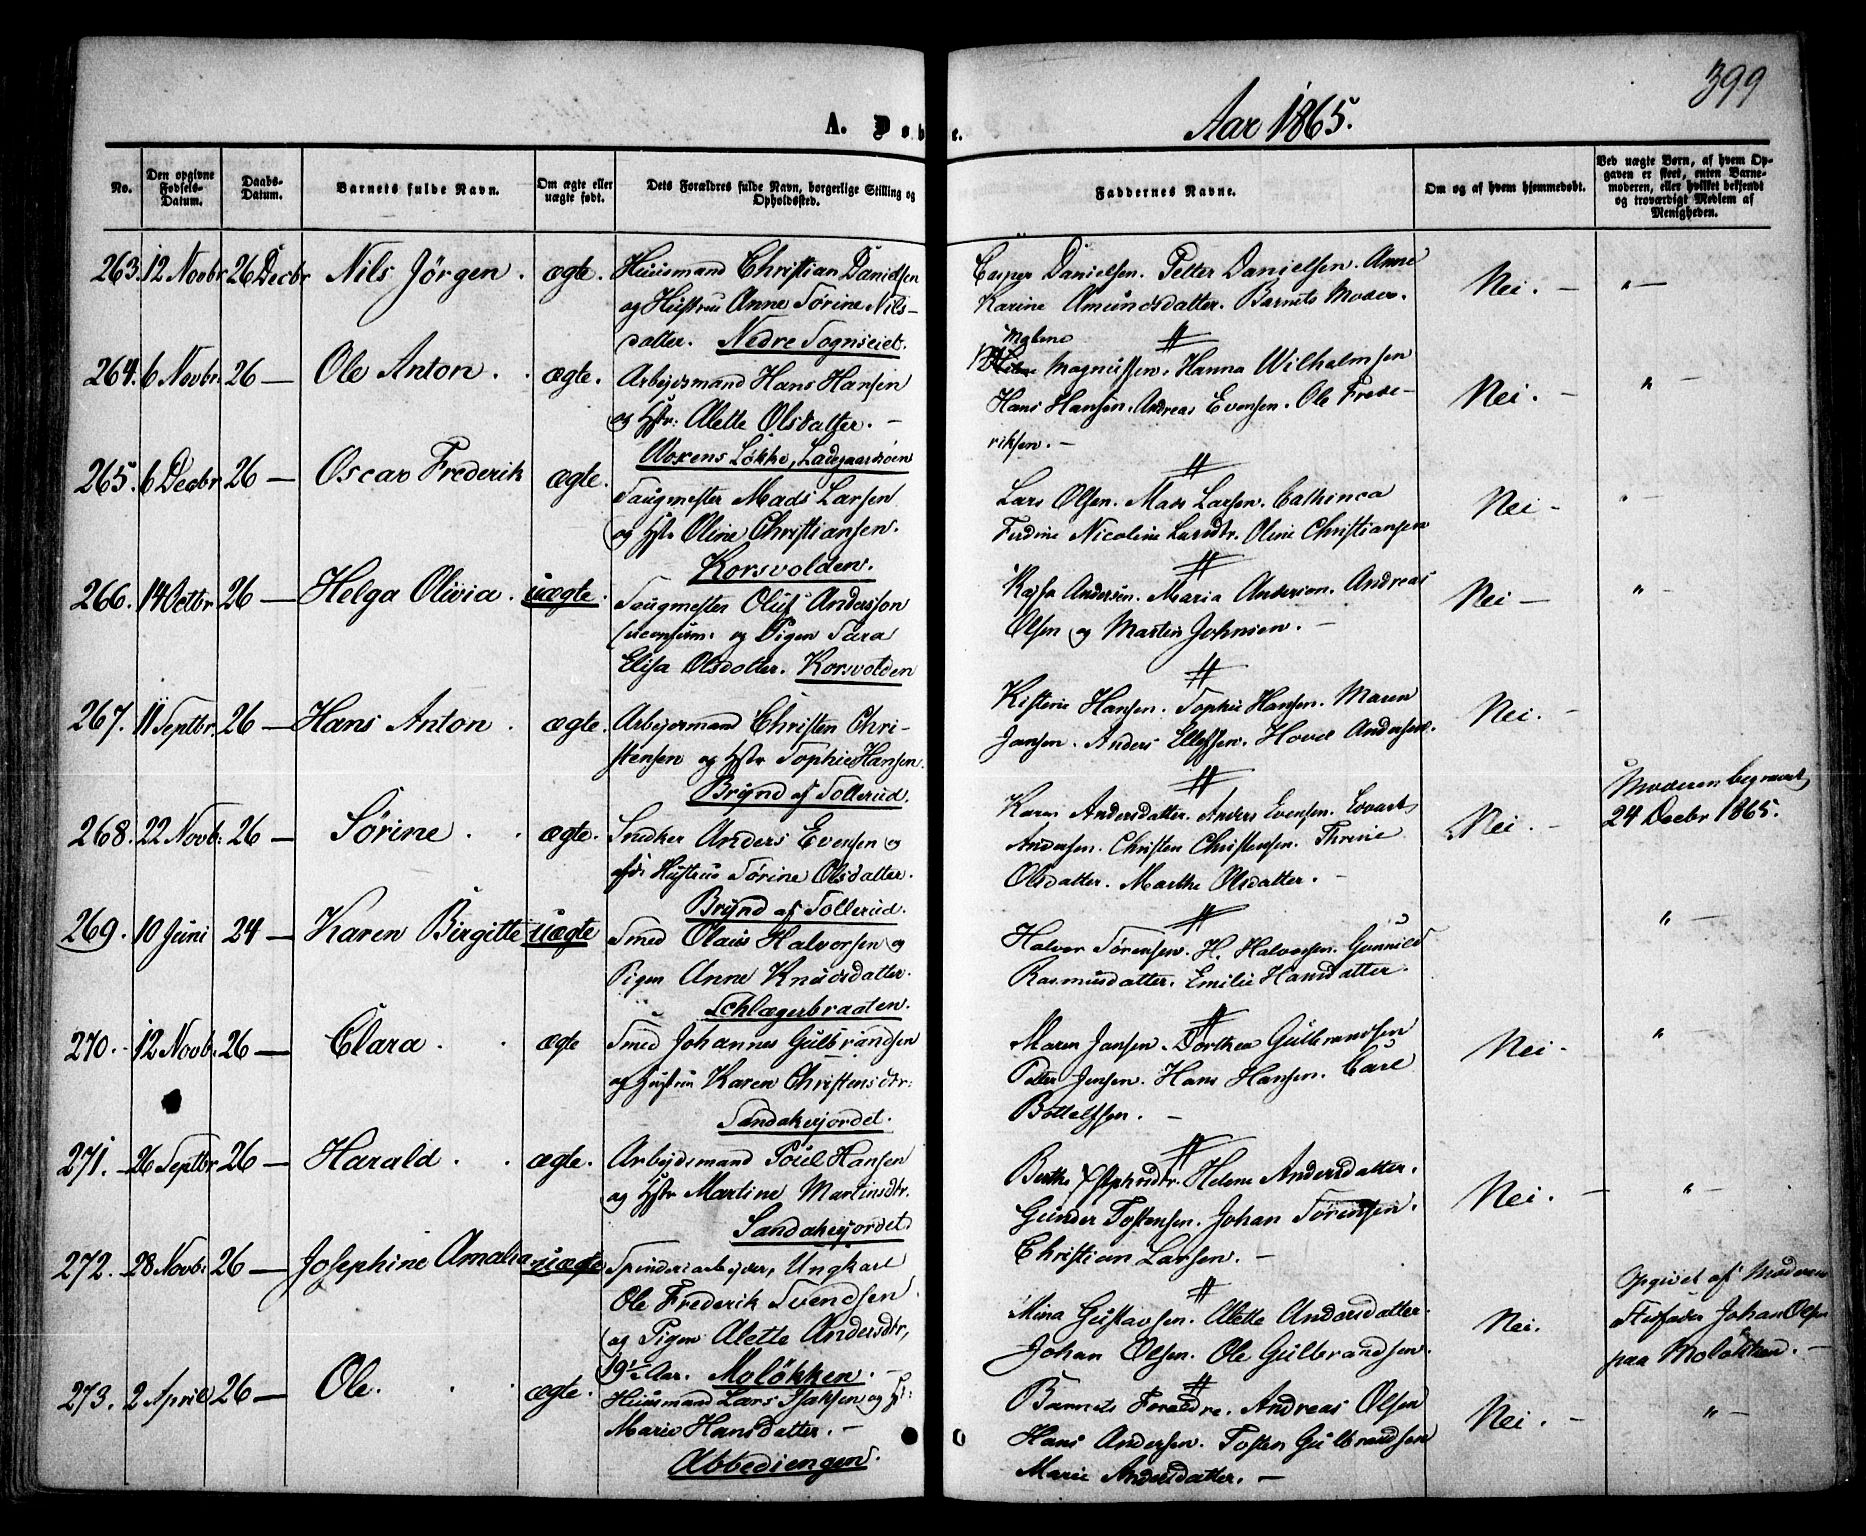 399
A. Døbte.
Aar 1865.
No.
Den opgivne Fødsels-Datum.
Daabs-Datum.
Barnets fulde Navn.
Om ægte eller uægte født.
Dets Forældres fulde Navn, borgerlige Stilling og Opholdssted.
Faddernes Navne.
Om og af hvem hjemmedøbt.
Ved uægte Børn, af hvem Opgaven er skeet, enten Barnemoderen, eller hvilket bekjendt og troværdigt Medlem af Menigheden.
263. 12 Novbr 26 Decbr Nils Jörgen. ægte. Huusmand Christian Danielsen
og Hustru Anne Sörine Nils-
datter. Nedre Sognseiet.
Casper Danielsen. Petter Danielsen. Anne
Karine Amundsdatter. Barnets Moder.
Nei. — " —
264. 6 Novbr. 26 — Ole Anton. ægte. Arbeidsmand Hans Hansen
og Hstr: Alette Olsdatter. —
Woxens Løkke, Ladegaardsöen
Malene
Magnussen. Hanna Wilhelmsen
Hans Hansen. Andreas Evensen. Ole Frede-
riksen. —
Nei. — " —
265. 6 Decbr 26 — Oscar Frederik ægte. Saugmester Mads Larsen
og Hstr Oline Christiansen.
Korsvolden.
Lars Olsen. Mads Larsen. Cathinca
Ferdine Nicoline Larsdtr. Oline Christiansen
Nei — " —
266. 14 Octbr 26 — Helga Olivia. uægte. Saugmester Oluf Andersson
og Pigen Sara
Elisa Olsdatter. Korsvolden
Kajsa Andersen. Maria Andersen. Andreas
Olsen og Martin Johnsen. —
Nei — " —
267. 11 Septbr. 26 — Hans Anton. ægte. Arbeidsmand Christen Chri-
stensen og Hstr Sophie Hansen.
Brÿnd af Tollerud.
Kistine Hansen. Sophie Hansen. Maren
Jansen. Anders Ellefsen. Hovel Andersen.
Nei. —
268. 22 Novb. 26 — Sörine. ægte. Snedker Anders Evensen og
afd. Hustru Sörine Olsdatter.
Brÿnd af Tollerud.
Karen Andersdatter. Anders Evensen. Edvart
Andersen. Christen Christensen. Thrine
Olsdatter. Marthe Olsdatter. —
Nei. —
Moderen begravet
24 Decbr 1865.
269. 10 Juni 24 — Karen Birgitte uægte Smed Olaus Halvorsen og
Pigen Anne Knudsdatter.
Schlægerbraaten.
Halvor Sörensen. H. Halvorsen. Gunnild
Rasmusdatter. Emilie Hansdatter.
" —
270. 12 Novb. 26 — Clara. ægte Smed Johannes Gulbrandsen
og Hustru Karen Christensdtr:
Sandakerjordet.
Maren Jansen. Dorthea Gulbrandsen
Petter Jensen. Hans Hansen. Carl
Bottelfsen. —
Nei — " —
271. 26 Septbr 26 — Harald. ægte. Arbeidsmand Poul Hansen
og Hstr Martine Martinsdtr.
Sandakerjordet
Berthe Helene Andersdatter.
Gunder Tostensen. Johan Sörensen.
Christian Larsen. —
Nei. — " —
272. 28 Novb. 26 — Josephine Amalia uægte Spinderiarbejder, Ungkarl
Ole Frederik Svendsen.
og Pigen Alette Andersdtr,
19½ Aar. Moløkken. —
Mina Gustavsen. Alette Andersdatter.
Johan Olsen. Ole Gulbrandsen.
Nei.
Opgivet af Moderens
Stedfader Johan Olsen
paa Moløkken. —
273. 2 April 26 — Ole. ægte. Huusmand Lars Isaksen og H:
Marie Hansdatter. —
Abbediengen.
Barnets Forældre. Andreas Olsen
Hans Andersen. Tosten Gulbrandsen
Marie Andersdatter. —
Nei. — " —